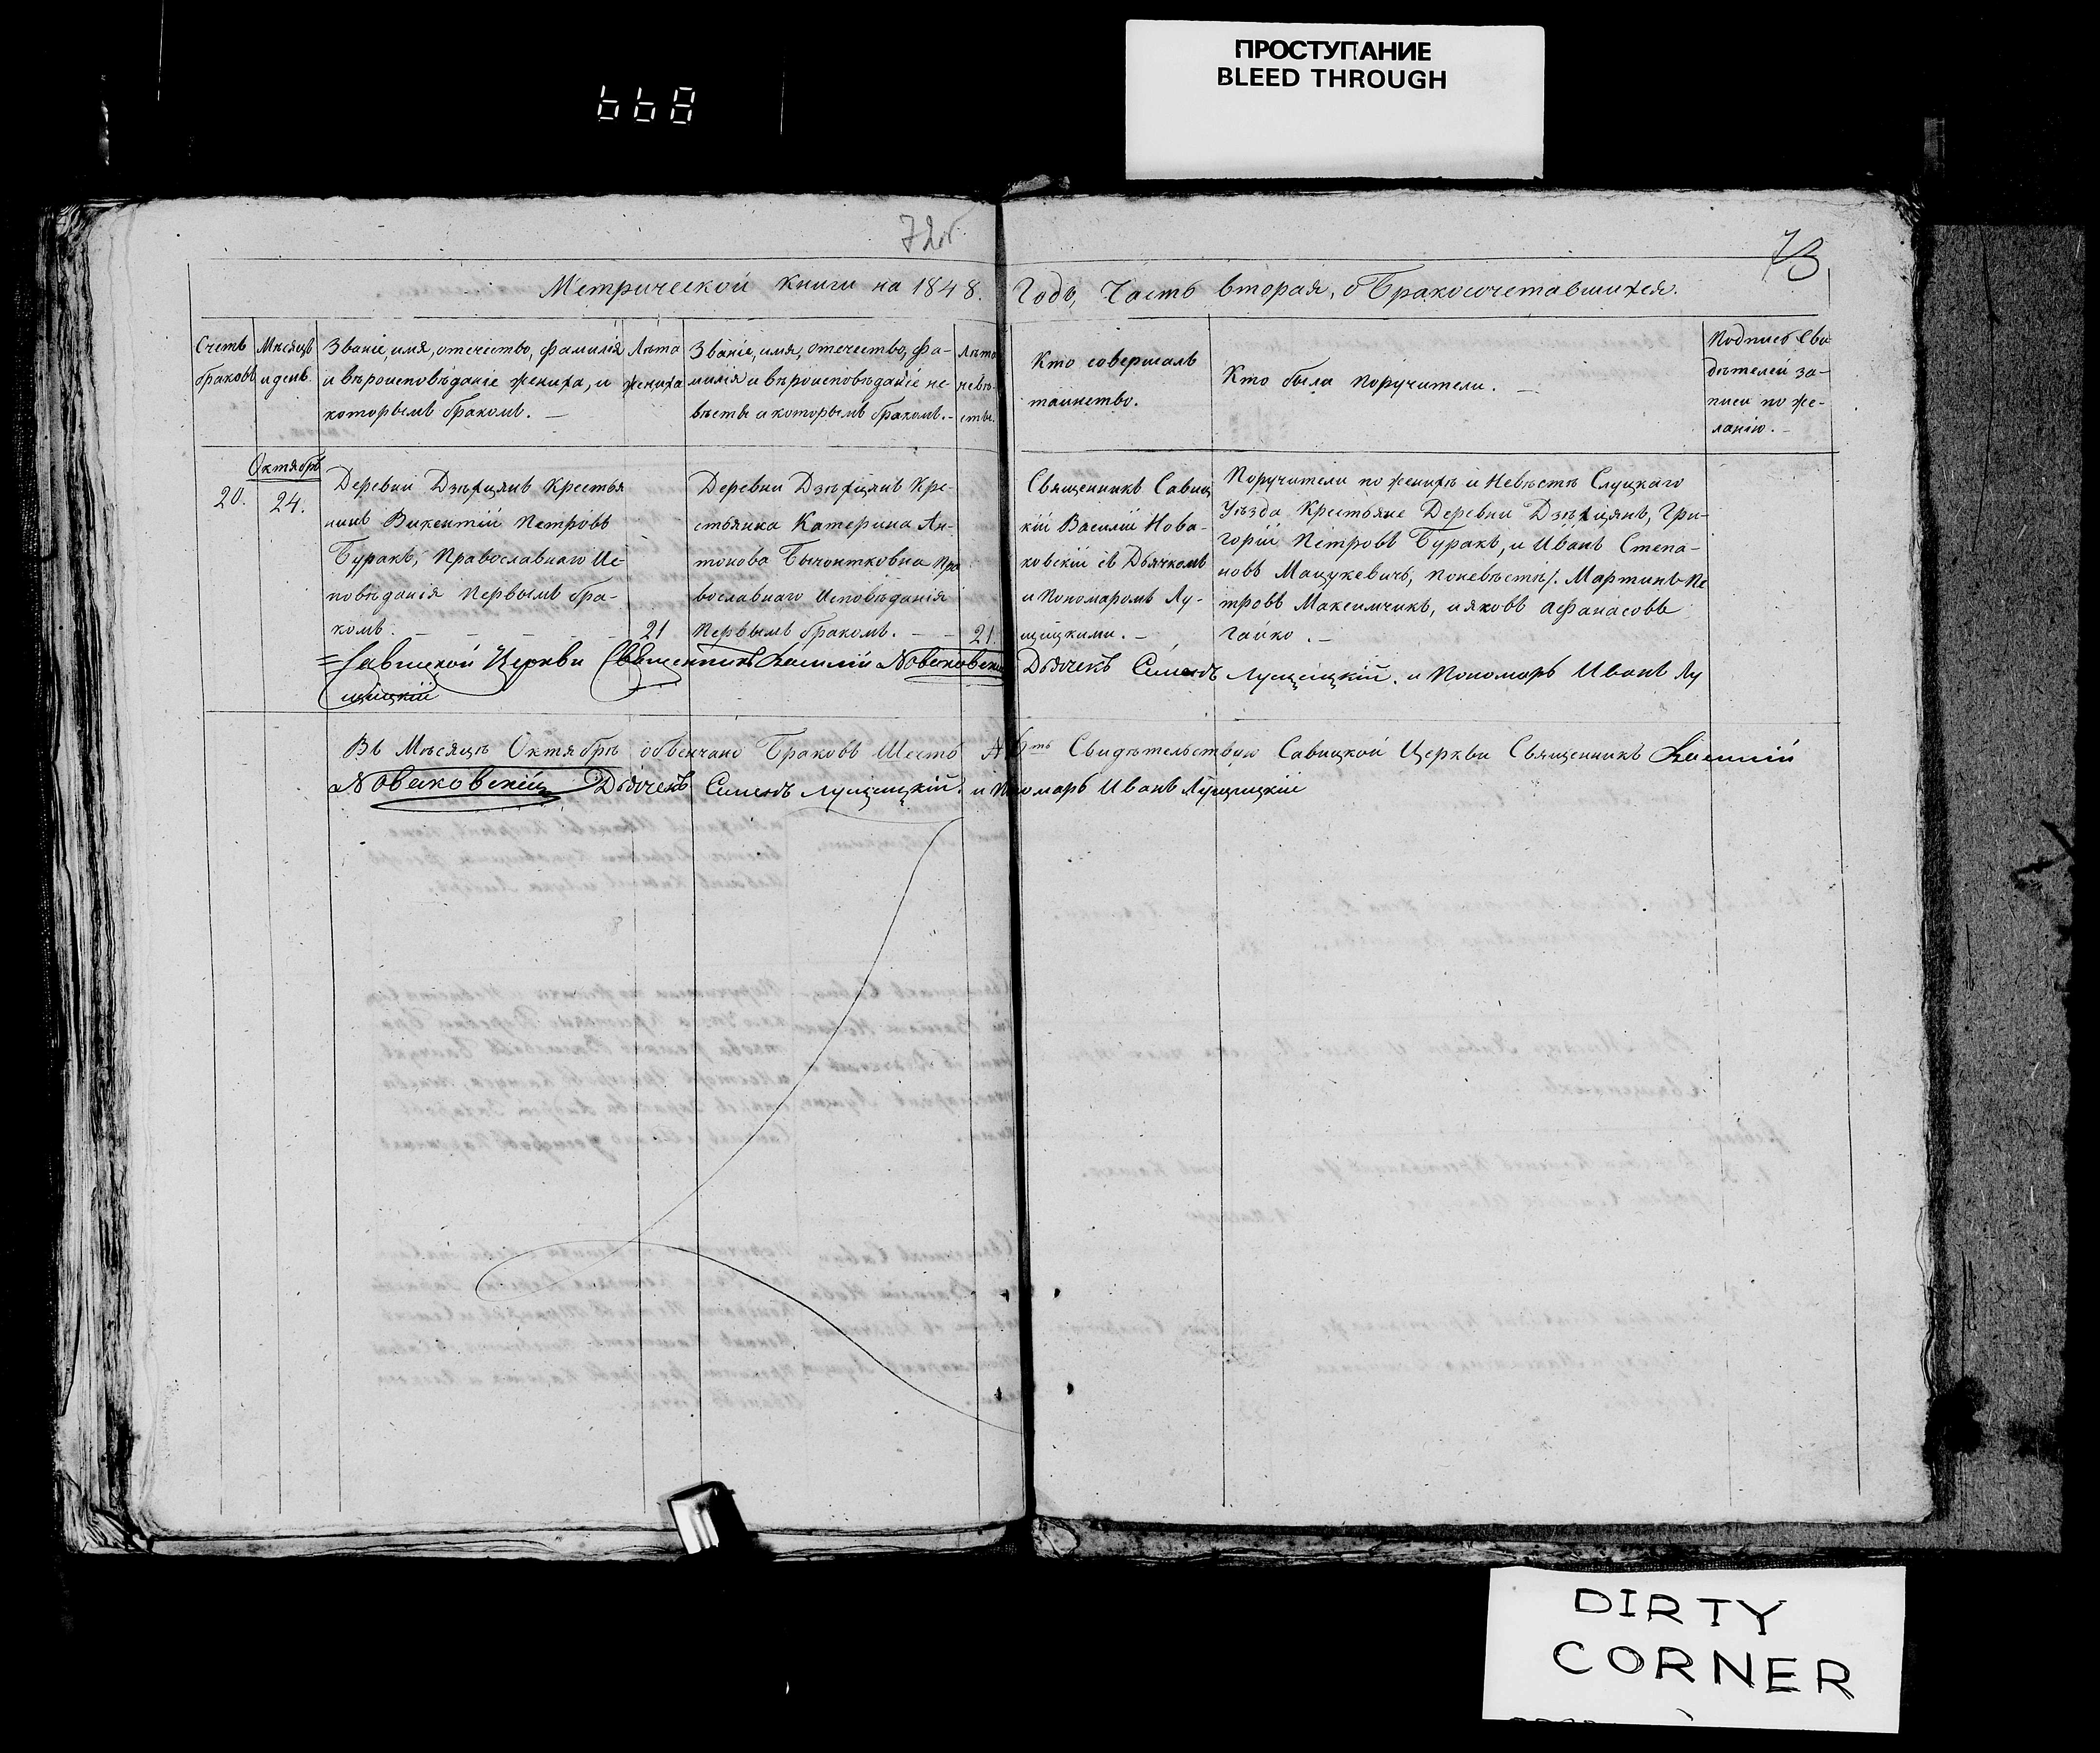 ПРОСТУПАНИЕ
BLEED THROUGH
668
72об
73
Метрической книги на 1848. Годъ, Часть вторая, о Бракосочетавшихся.
Счетъ браковъ
Мѣсяцъ и день
Званіе, имя, отечество, фамилія
и вѣроисповѣданіе жениха, и
которымъ бракомъ. —
Лѣта
жениха
Званіе, имя, отечество, фа-
милія и вѣроисповѣданіе не-
вѣсты и которымъ бракомъ. -
Лѣта
невѣ-
сты.
Кто совершалъ
таинство.
Кто были поручители. —
Подпись сви
дѣтелей за-
писи по же-
ланію. -
Октябрь
20.
24.
Деревни Крестья
нинъ Викентій Петровъ
Буракъ, Православнаго Ис-
повѣданія Первымъ бра-
комъ. —
21
Деревни Кре-
стьянка Катерина Ан-
тонова Пра
вославнаго Исповѣданія
Первымъ бракомъ. —
21.
Священникъ Савиц
кій Василій Нова-
ковскій съ Дьячкомъ
и Пономаромъ Лу-
щицкими. —
Поручители по женихѣ и Невѣстѣ Слуцкаго
Уѣзда Крестьяне Деревни Гри-
горій Петровъ Буракъ, и Иванъ Степа-
новъ Мацукевичъ, поневѣстѣ/. Мартинъ Пе
тровъ Максимчикъ, и яковъ Афанасовъ
Гайко. —
=Савицкой Церкви Священникъ Василій Новаковскій Дьячекъ Симеонъ Лущицкій. и Пономарь Иванъ Лу
щицкій
Въ Мѣсяцѣ Октябрѣ обвенчано Браковъ Шесть № 6ть Свидѣтельствую Савицкой Церкви Священникъ Василій
Новаковскій Дьячекъ Симеонъ Лущицкій. и Пономарь Иванъ Лущицкій
DIRTY
CORNER